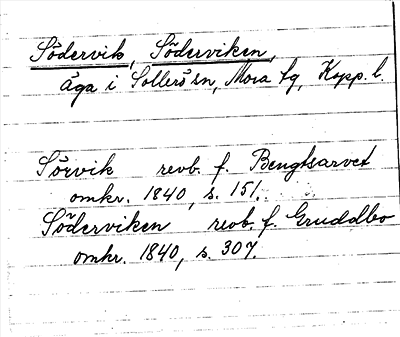 Södervik, Söderviken,
äga i Sollerö sn, Mora tg, Kopp. l.
Sörvik revb. f. Bengtsarvet
omkr. 1840, s. 151.
Söderviken revb. f. Gruddbo
omkr. 1840, s. 307.